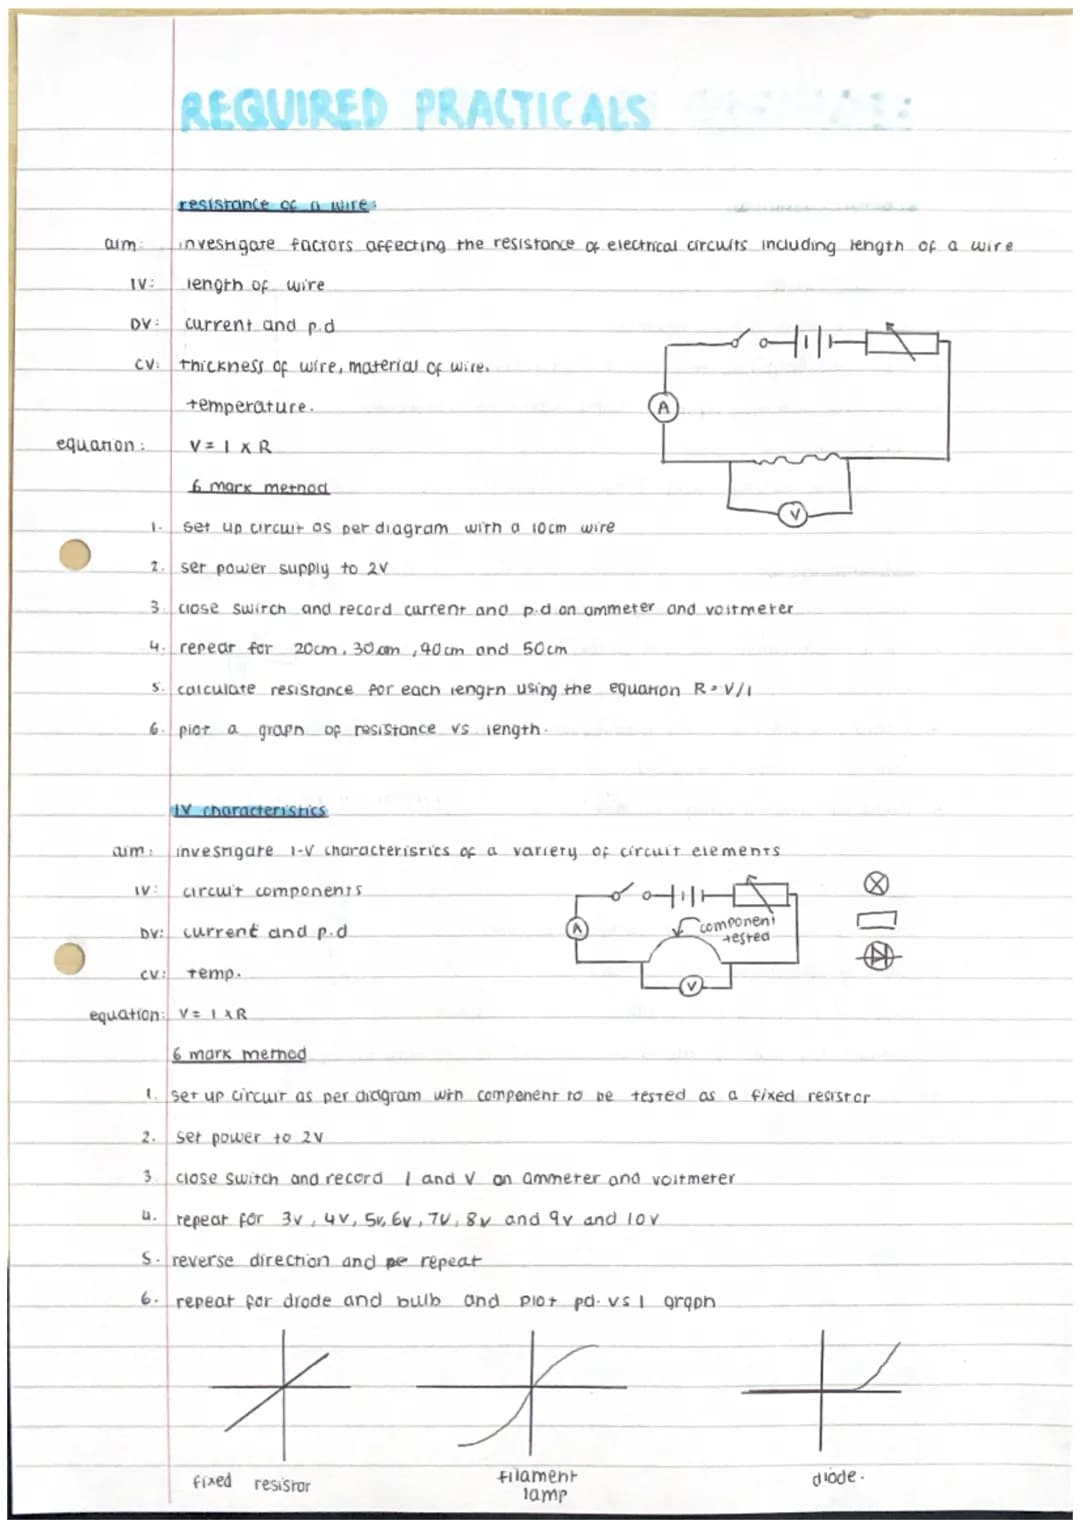 REQUIRED PRACTICALS
resistance of a wire:
aim: investigate factors affecting the resistance of electrical circuits including length of a wire
IV: length of wire
DV: current and p.d
CV: thickness of wire, material of wire,
temperature.
A
equation: V = I x R
6 mark method
V
1. set up circuit as per diagram with a 10cm wire
2. set power supply to 2V
3. close switch and record current and p.d on ammeter and voltmeter
4. repeat for 20cm, 30cm, 40cm and 50cm
5. calculate resistance for each length using the equation R = V/I
6. plot a graph of resistance vs length.
IV characteristics
aim: investigate I-V characteristics of a variety of circuit elements
IV: circuit components
DV: current and p.d
A
component
tested
CV: temp.
V
equation: V = I x R
6 mark method
1. set up circuit as per diagram with compenent to be tested as a fixed resistor
2. set power to 2V
3. close switch and record I and V on ammeter and voltmeter
4. repeat for 3v, 4v, 5v, 6v, 7v, 8v and 9v and 10v
5. reverse direction and repeat
6. repeat for diode and bulb and plot pd. vs I graph
fixed resistor
filament
lamp
diode.